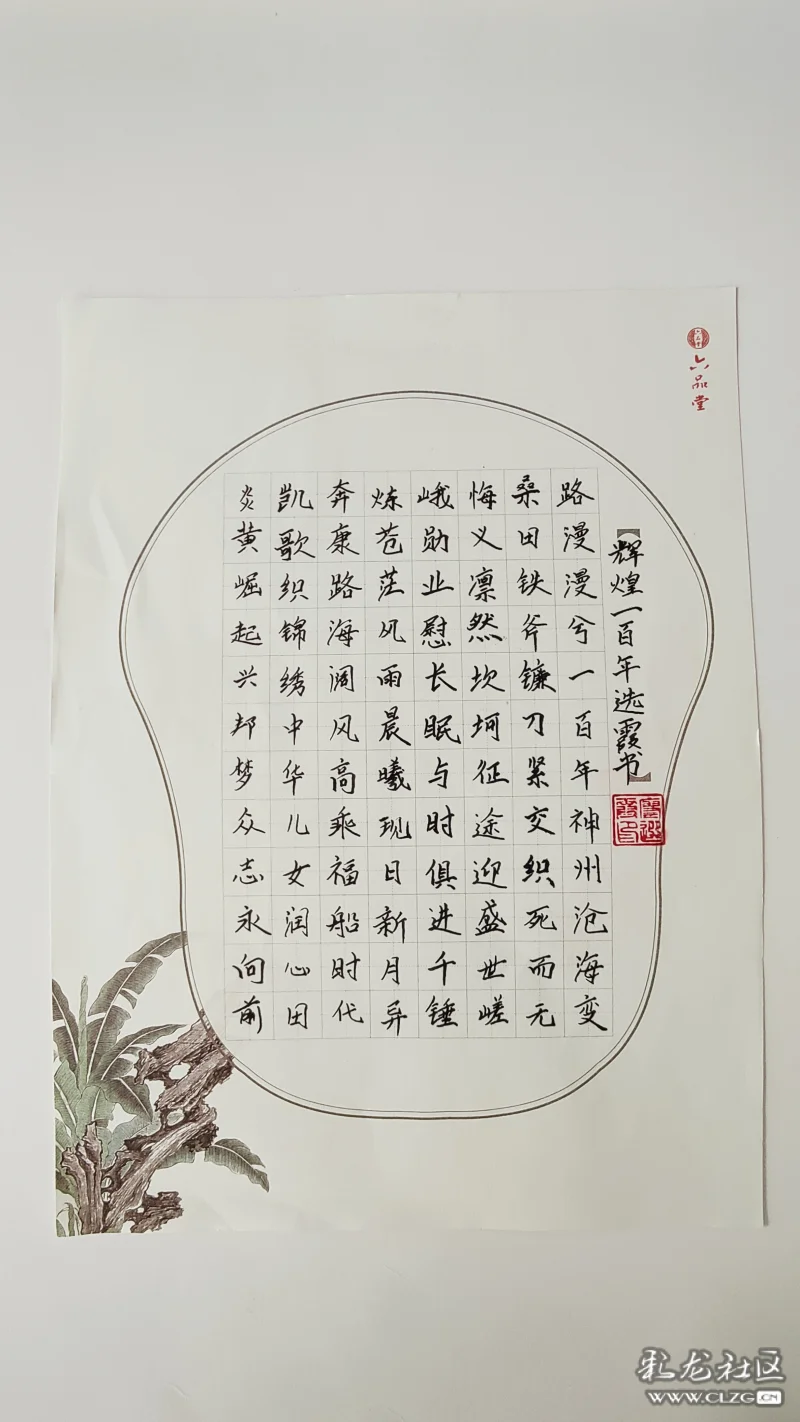 六品堂
【辉煌一百年选霞书】
路漫漫兮一百年神州沧海变
桑田铁斧镰刀紧交织死而无
悔义凛然坎坷征途迎盛世嵯
峨勋业慰长眠与时俱进千锤
炼苍茫风雨晨曦现日新月异
奔康路海阔风高乘福船时代
凯歌织锦绣中华儿女润心田
炎黄崛起兴邦梦众志永向前
彩龙社区
WWW.CLZG.CN